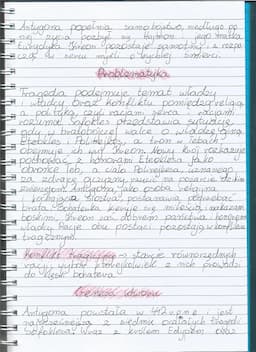 Antygona popełnia samobójstwo, niedługo po
niej życia pozbył się Hajmon i jego matka
Eurydyka. Kreon pozostaje samotny z rozpa-
czą w sercu myśli o rychłej śmierci.
Problematyka
Tragedia podejmuje temat władzy
i władcy oraz konfliktu pomiędzy religią
a polityką, czyli racjami serca i racjami
rozumu. Sofokles przedstawia sytuację
gdy w bratobójczej walce o władzę giną
Eteokles i Polinejkes, a tron w Tebach
obejmuje ich wuj Kreon. Nowy król nakazuje
pochować z honorami Eteoklesa jako
obrońcę Teb, a ciało Polinejkesa, uznanego
za zdrajcę ojczyzny, rzucić na pożarcie dzikim
zwierzętom. Antygona jako osoba religijna
i kochająca siostra, postanawia pochować
brata. Bohaterka kieruje się miłością, nakazem
boskim, Kreon zaś dobrem państwa i
władzy. Racje obu postaci pozostają w konflikcie
tragicznym.
Konflikt tragiczny - starcie równorzędnych
racji, wybór którejkolwiek z nich prowadzi
do klęski bohatera.
Geneza utworu
Antygona powstała w 442 r. p.n.e. i jest
najwcześniejszą z siedmiu ocalałych tragedii
Sofoklesa. Wraz z królem Edypem oraz